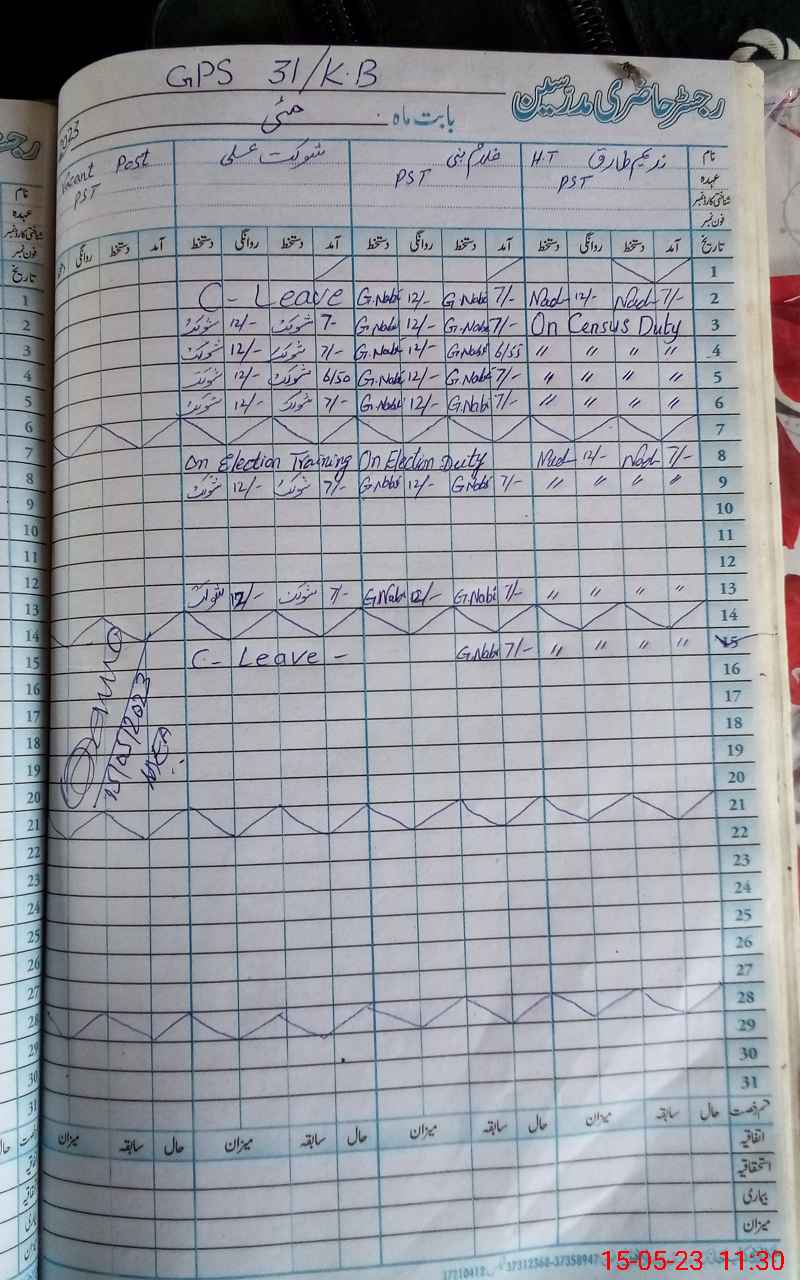 GPS 31/K.B
رجسٹر حاضری مدرسین
بابت ماہ مئی
2023
نام ندیم طارق H.T غلام نبی شوکت علی Vacant Post
عہدہ PST PST PST
شناختی کارڈ نمبر
فون نمبر
تاریخ آمد دستخط روانگی دستخط آمد دستخط روانگی دستخط آمد دستخط روانگی دستخط آمد دستخط روانگی
1
C - Leave G.Nabi 12/- G.Nabi 7/- Nad 12/- Nad 7/- 2
شوکت 12/- شوکت 7- G.Nabi 12/- G.Nabi 7/- On Census Duty 3
شوکت 12/- شوکت 7/- G.Nabi 12/- G.Nabi 6/55 " " " " 4
شوکت 12/- شوکت 6/50 G.Nabi 12/- G.Nabi 7/- " " " " 5
شوکت 12/- شوکت 7/- G.Nabi 12/- G.Nabi 7/- " " " " 6
7
On Election Training On Election Duty Nad 12/- Nad 7/- 8
شوکت 12/- شوکت 7/- G.Nabi 12/- G.Nabi 7/- " " " " 9
10
11
12
شوکت 12/- شوکت 7/- G.Nabi 12/- G.Nabi 7/- " " " " 13
14
C - Leave - G.Nabi 7/- " " " " 15
16
17
18
19
20
21
22
23
24
25
26
27
28
29
30
31
15/05/2023
MEA
قسم رخصت حال سابقہ میزان حال سابقہ میزان حال سابقہ میزان حال سابقہ میزان
اتفاقیہ
استحقاقیہ
بیماری
میزان
37210412 37312368-37358947
15-05-23 11:30